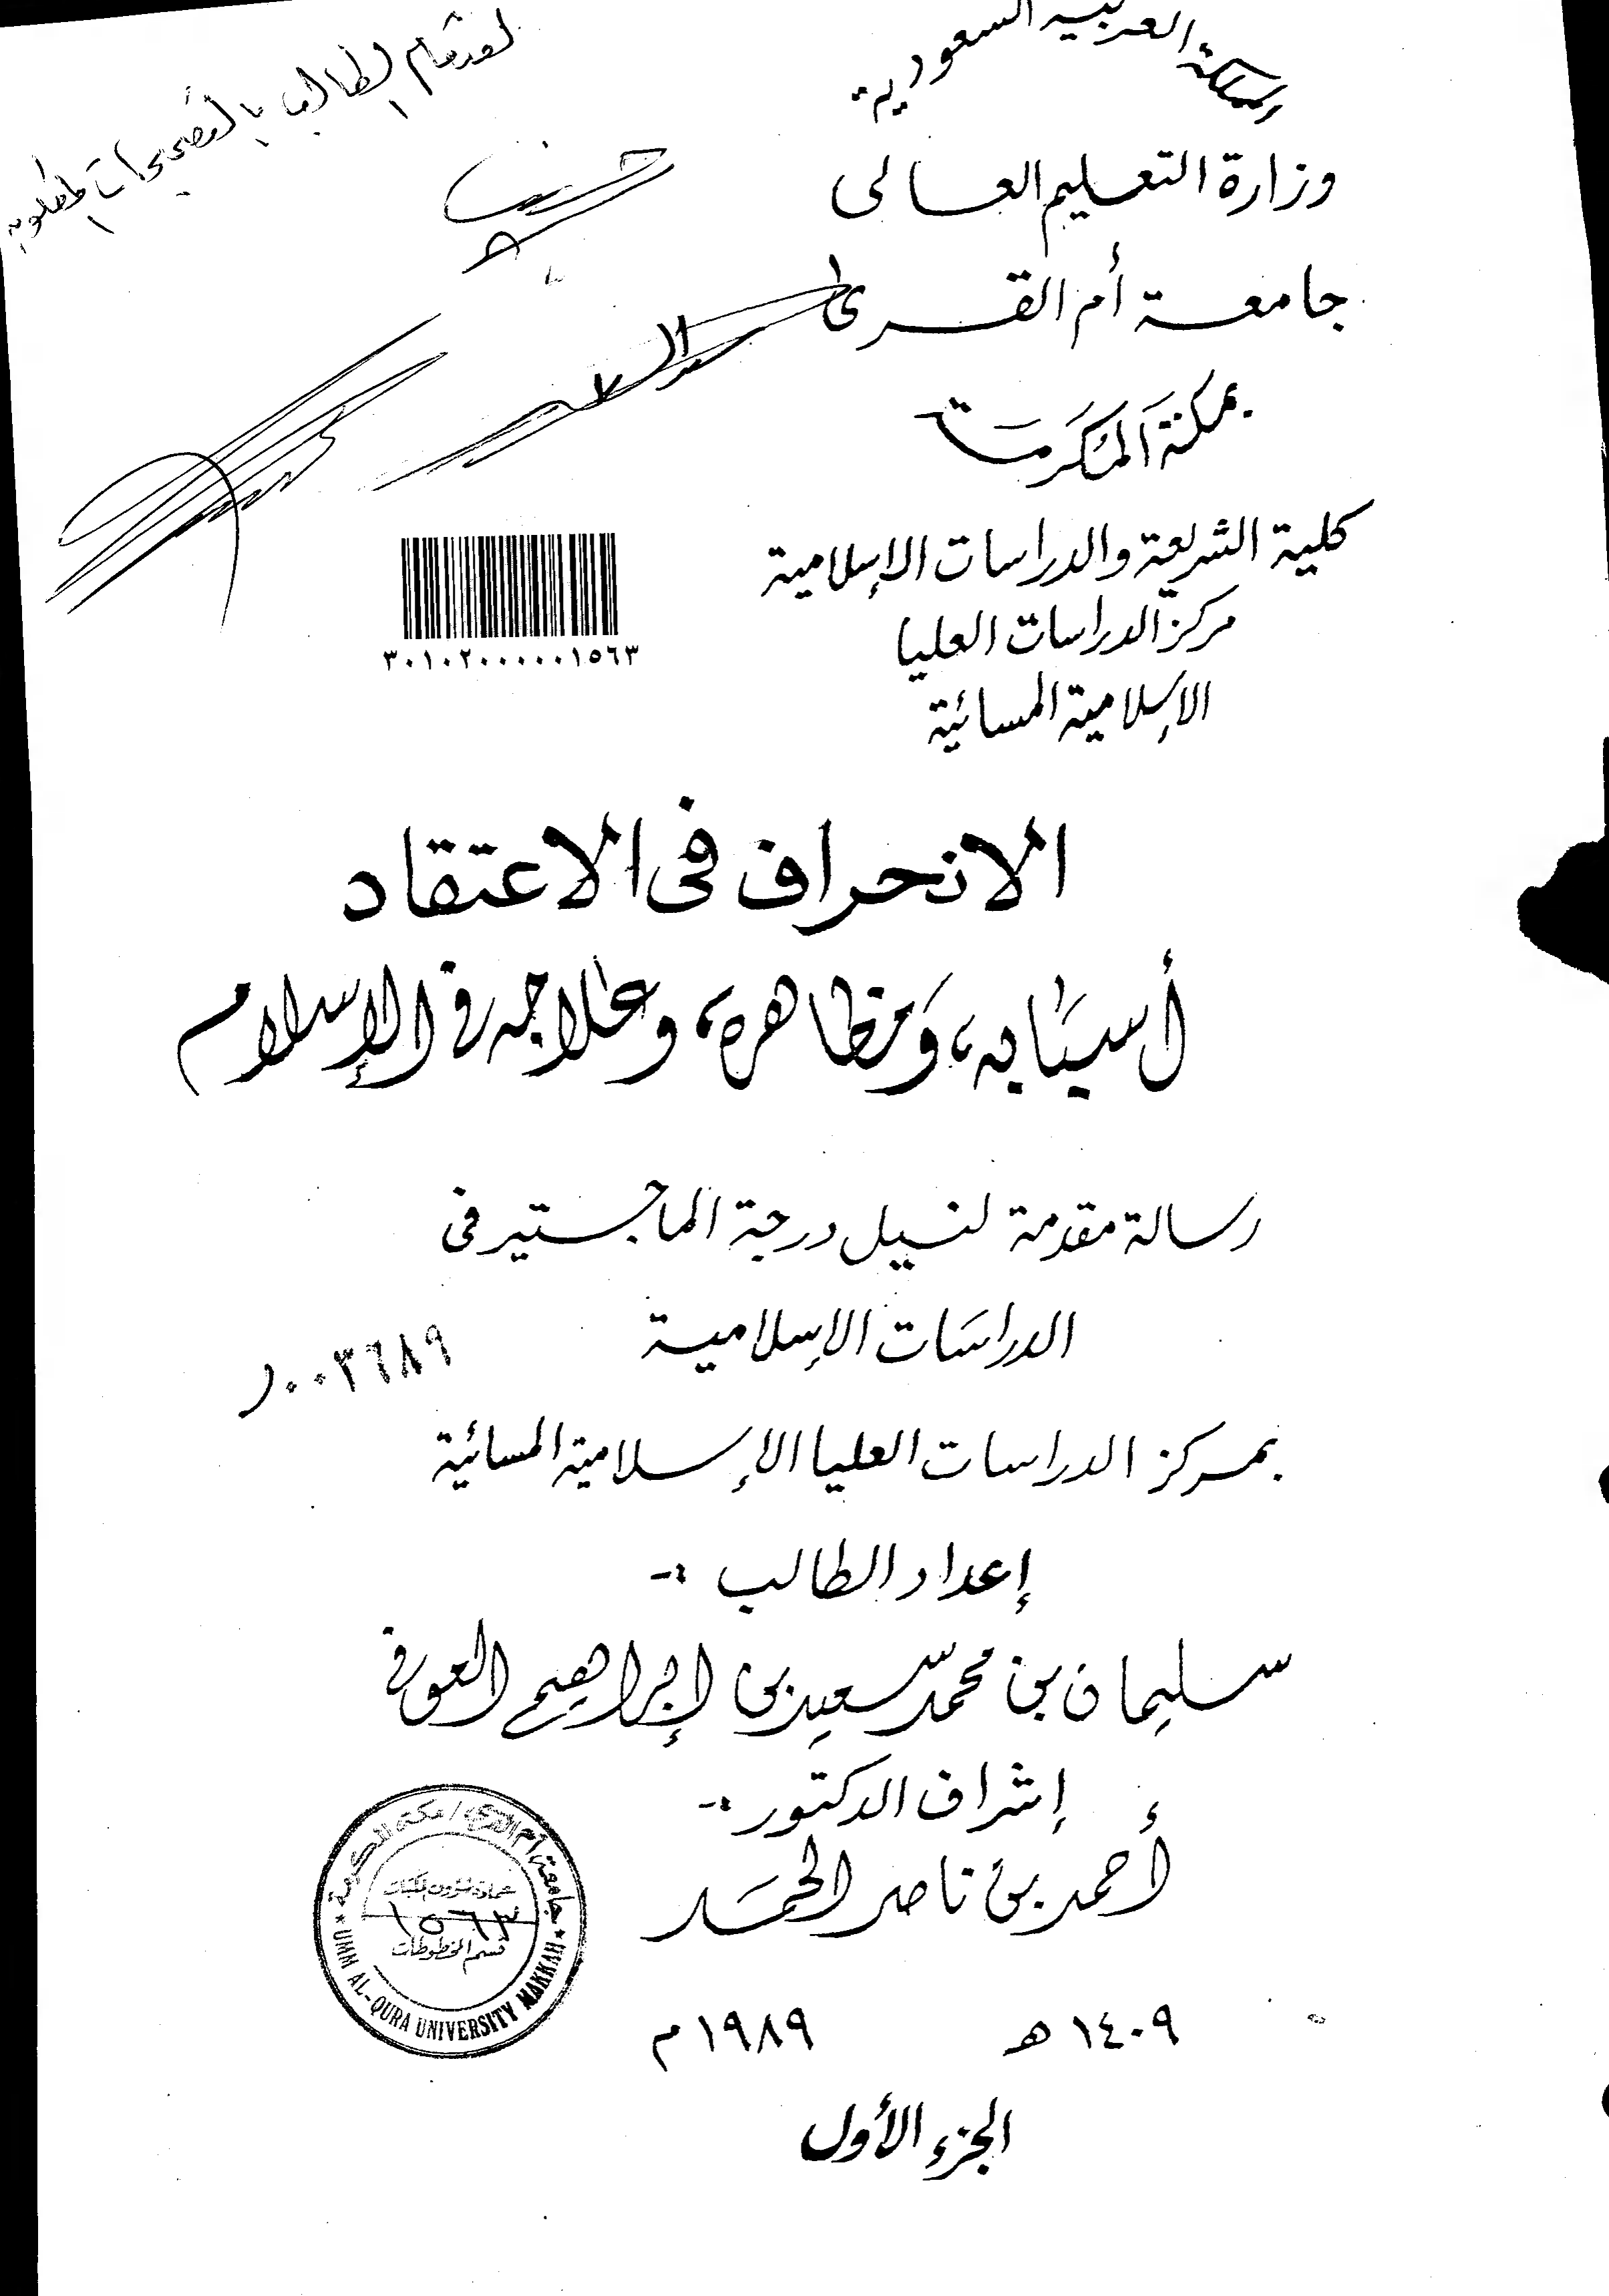 المملكة العربية السعودية
وزارة التعليم العالى
جامعة أم القرى
بمكة المكرمة
كلية الشريعة والدراسات الإسلامية
مركز الدراسات العليا
الإسلامية المسائية
لقد قام الطالب بالتصحيحات المطلوبة
٣٠١٠٢٠٠٠٠٠١٥٦٣
الانحراف فى الاعتقاد
أسبَابه، وَمظاهره، وعلاجه فى الإسلام
رسالة مقدمة لنيل درجة الماجستير فى
الدراسَات الإسلامية
٠٠٣٦٨٩ر
بمركز الدراسات العليا الإسلامية المسائية
إعداد الطالب :-
سليمان بن محمد سعيد بن إبراهيم العوفى
إشراف الدكتور :-
أحمد بن ناصر الحمَد
جامعة أم القرى / مكة المكرمة
عمادة شؤون المكتبات
١٥٦٣
قسم المخطوطات
* UMM AL-QURA UNIVERSITY MAKKAH *
١٤٠٩ هـ ١٩٨٩ م
الجزء الأول